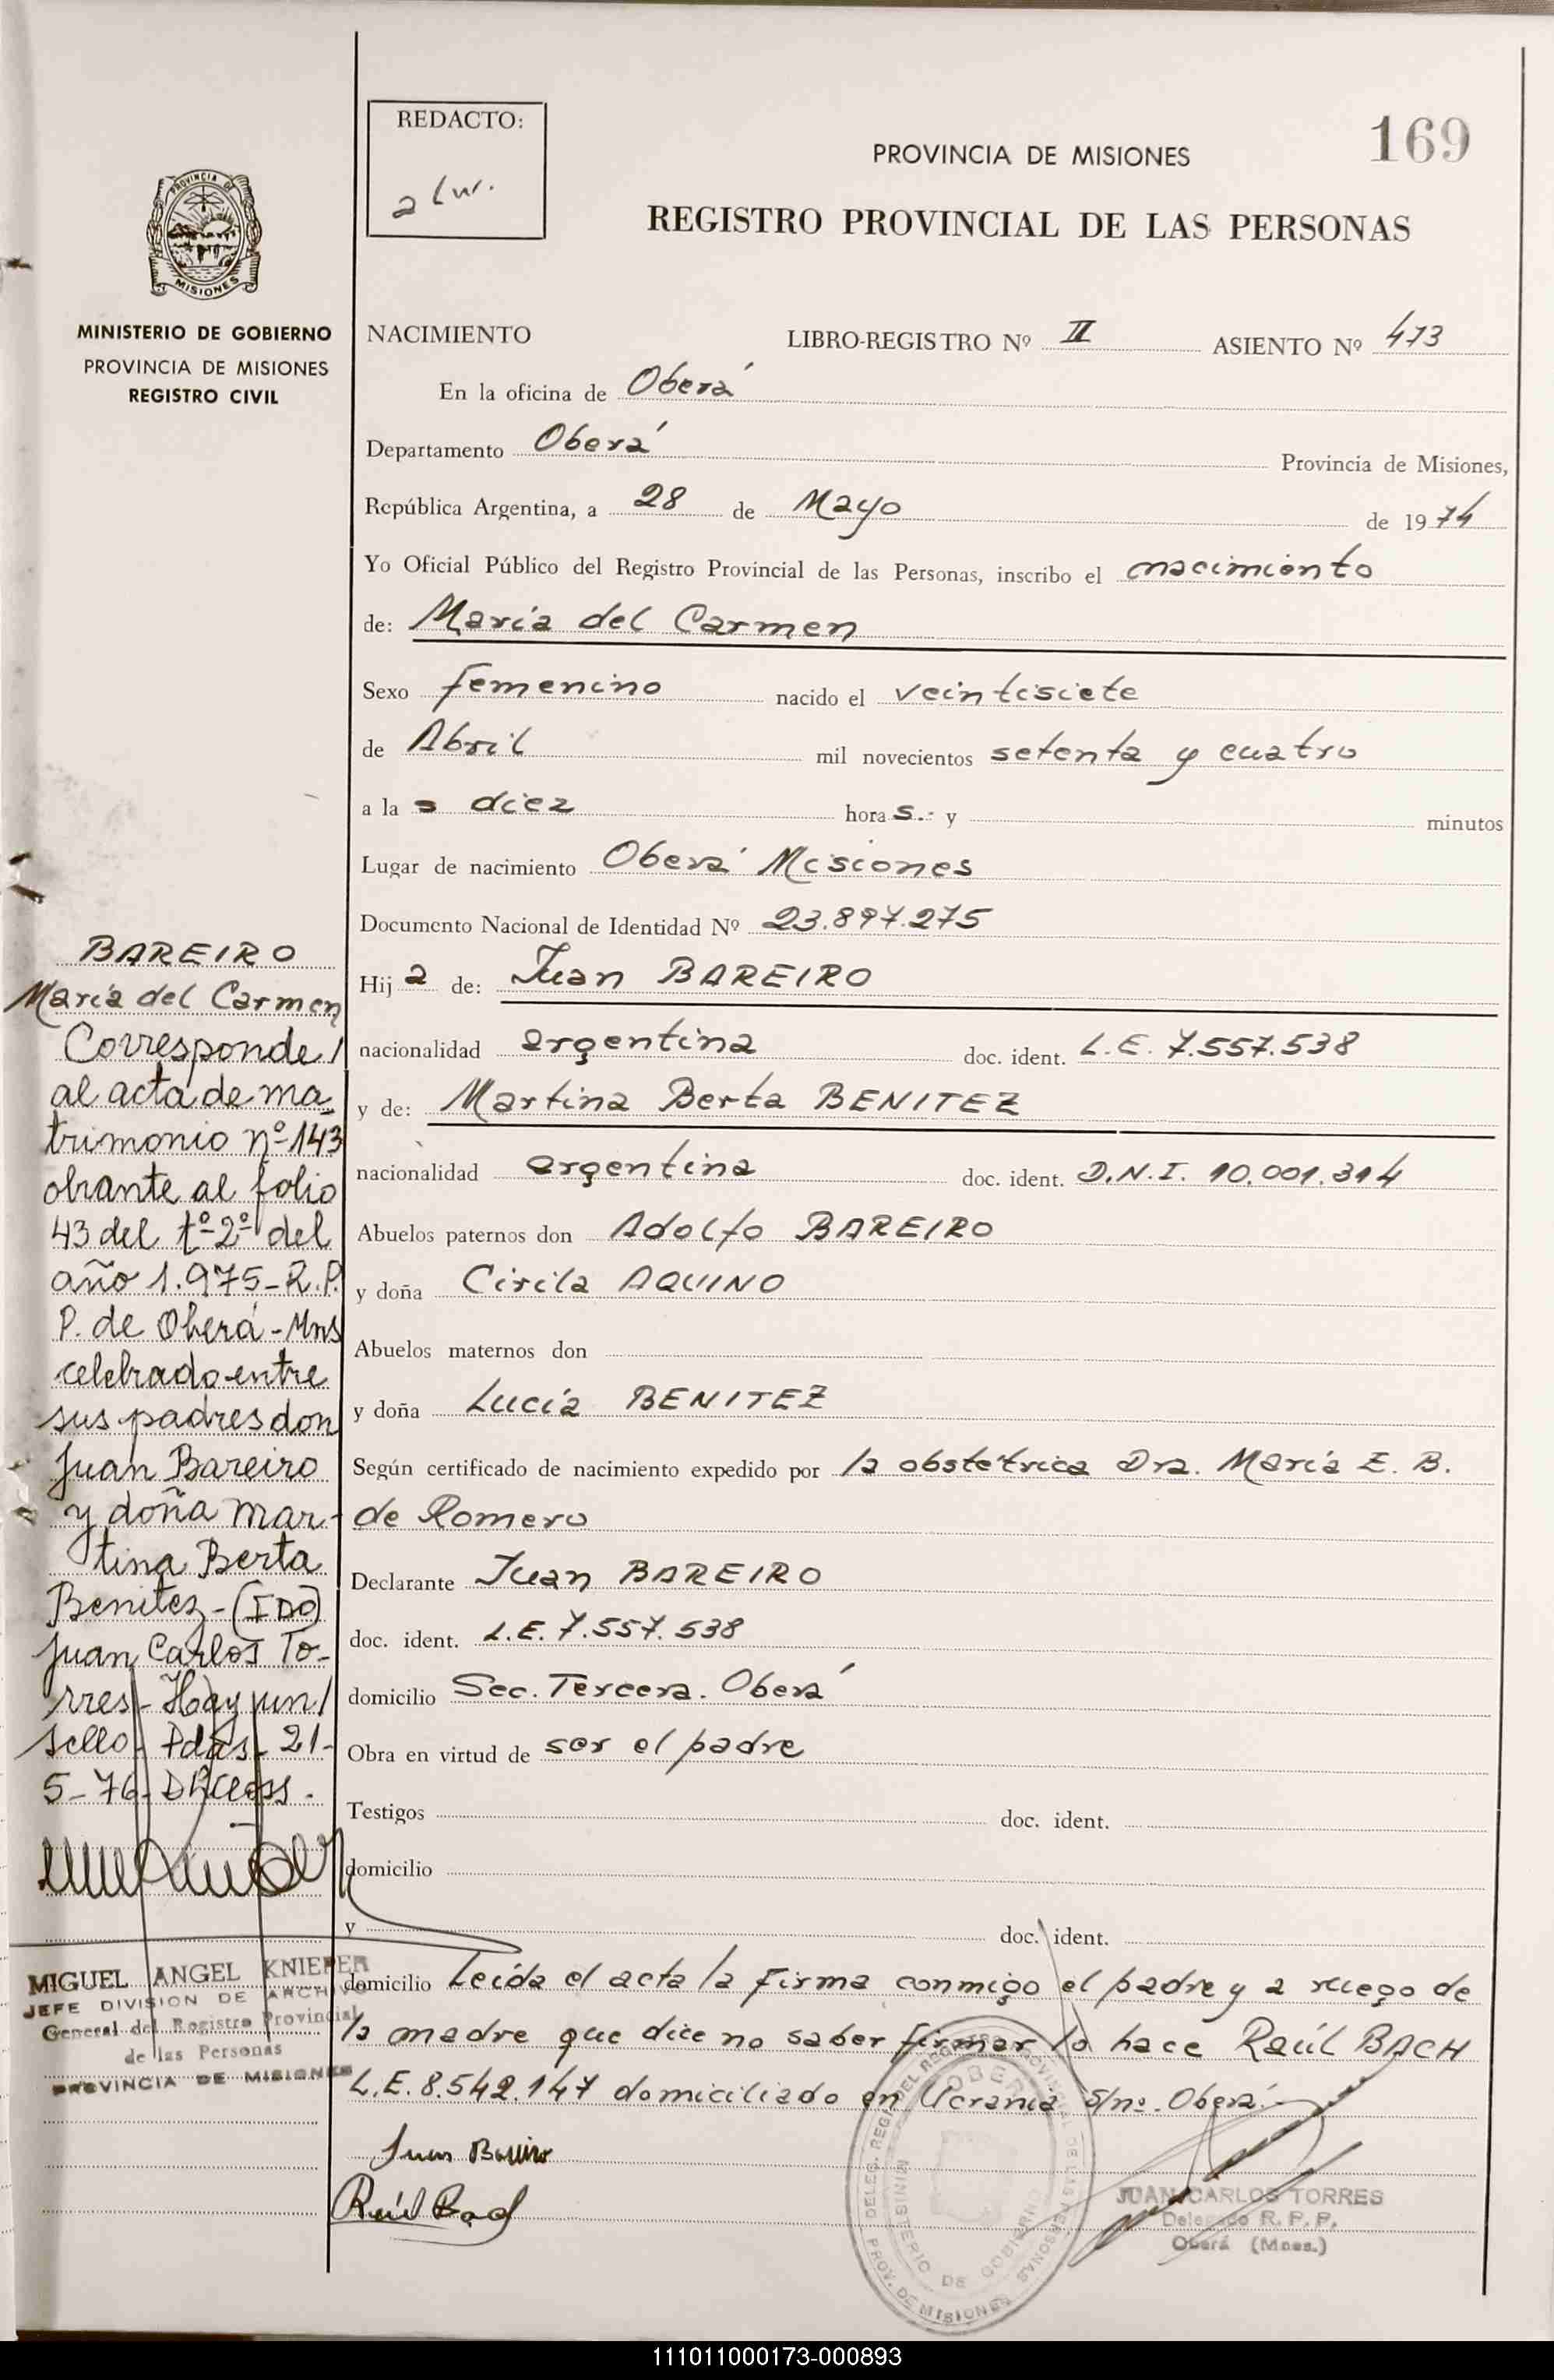 REDACTO:
169
PROVINCIA DE MISIONES
REGISTRO PROVINCIAL DE LAS PERSONAS
PROVINCIA DE
MISIONES
MINISTERIO DE GOBIERNO
PROVINCIA DE MISIONES
REGISTRO CIVIL
NACIMIENTO LIBRO-REGISTRO Nº II ASIENTO Nº 473
En la oficina de Oberá
Departamento Oberá Provincia de Misiones,
República Argentina, a 28 de Mayo de 1974
Yo Oficial Público del Registro Provincial de las Personas, inscribo el nacimiento
de: María del Carmen
Sexo femenino nacido el veintisiete
de Abril mil novecientos setenta y cuatro
a las diez horas.- y minutos
Lugar de nacimiento Oberá Misiones
Documento Nacional de Identidad Nº 23.897.275
Hija de: Juan BAREIRO
nacionalidad argentina doc. ident. L.E. 7.557.538
y de: Martina Berta BENITEZ
nacionalidad argentina doc. ident. D.N.I. 10.001.314
Abuelos paternos don Adolfo BAREIRO
y doña Cirila AQUINO
Abuelos maternos don
y doña Lucía BENITEZ
Según certificado de nacimiento expedido por la obstétrica Dra. María E. B.
de Romero
Declarante Juan BAREIRO
doc. ident. L.E. 7.557.538
domicilio Sec. Tercera. Oberá
Obra en virtud de ser el padre
Testigos doc. ident.
domicilio
y doc. ident.
domicilio Leída el acta la firma conmigo el padre y a ruego de
la madre que dice no saber firmar lo hace Raúl BACH
L.E. 8.542.147 domiciliado en Ucrania s/nº. Oberá.-
Juan Bareiro
Raúl Bach
BAREIRO
María del Carmen
Corresponde/
al acta de ma-
trimonio nº 143
obrante al folio
43 del tº 2º del
año 1.975-R.P.
P. de Oberá-Mns
celebrado entre
sus padres don
Juan Bareiro
y doña Mar-
tina Berta
Benitez-(FDO)
Juan Carlos To-
rres- Hay un/
sello- Pdas- 21-
5-76-
MIGUEL ANGEL KNIEPER
JEFE DIVISION DE ARCHIVO
General del Registro Provincial
de las Personas
PROVINCIA DE MISIONES
MINISTERIO DE GOBIERNO
PROV. DE MISIONES
JUAN CARLOS TORRES
Delegado R. P. P.
Oberá (Mnes.)
111011000173-000893